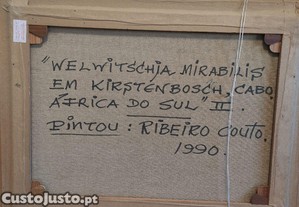 "WELWITSCHIA MIRABILIS
EM KIRSTENBOSCH, CABO,
ÁFRICA DO SUL" II.
PINTOU: RIBEIRO COUTO.
1990.
CustoJusto.pt